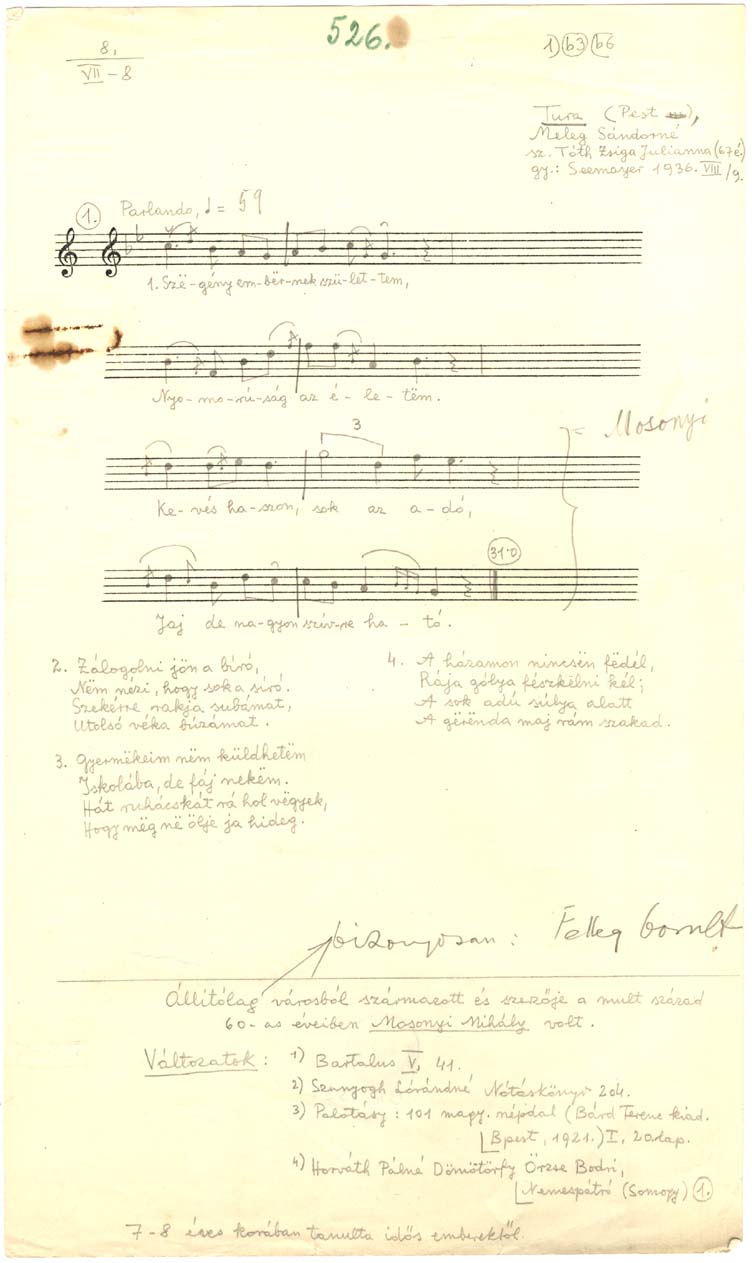 526.
8.
VII-8
1) b3 b6
Tura (Pest m),
Meleg Sándorné
sz. Tóth Zsiga Julianna (67 é.)
gy.: Seemayer 1936. VIII/9.
1. Parlando, ♩ = 59
1. Szë-gény em-bër-nek szü-let-tem,
Nyo-mo-rú-ság az é-le-tëm.
3
= Mosonyi
Ke-vés ha-szon, sok az a-dó,
31·0
Jaj de na-gyon szív-re ha-tó.
2. Zálogolni jön a bíró,
Nëm nézi, hogy sok a síró.
Szekérre rakja subámat,
Utolsó véka búzámat.
3. Gyermëkeim nëm küldhetëm
Iskolába, de fáj nekëm.
Hát ruhácskát rá hol vëgyek,
Hogy mëg në ölje ja hideg.
4. A házamon nincsën fëdél,
Rája gólya fészkëlni kél;
A sok adú súlya alatt
A gërënda maj rám szakad.
bizonyosan:
Állítólag városból származott és szerzője a mult század
60-as éveiben Mosonyi Mihály volt.
Változatok: 1) Bartalus V, 41.
2) Szunyogh Lórándné Nótáskönyv 204.
3) Palotásy: 101 magy. népdal (Bárd Ferenc kiad.
Bpest, 1921.) I, 20. lap.
4) Horváth Pálné Dömötörfy Örzse Bodri,
Nemespátró (Somogy) 1.
7-8 éves korában tanulta idős emberektől.